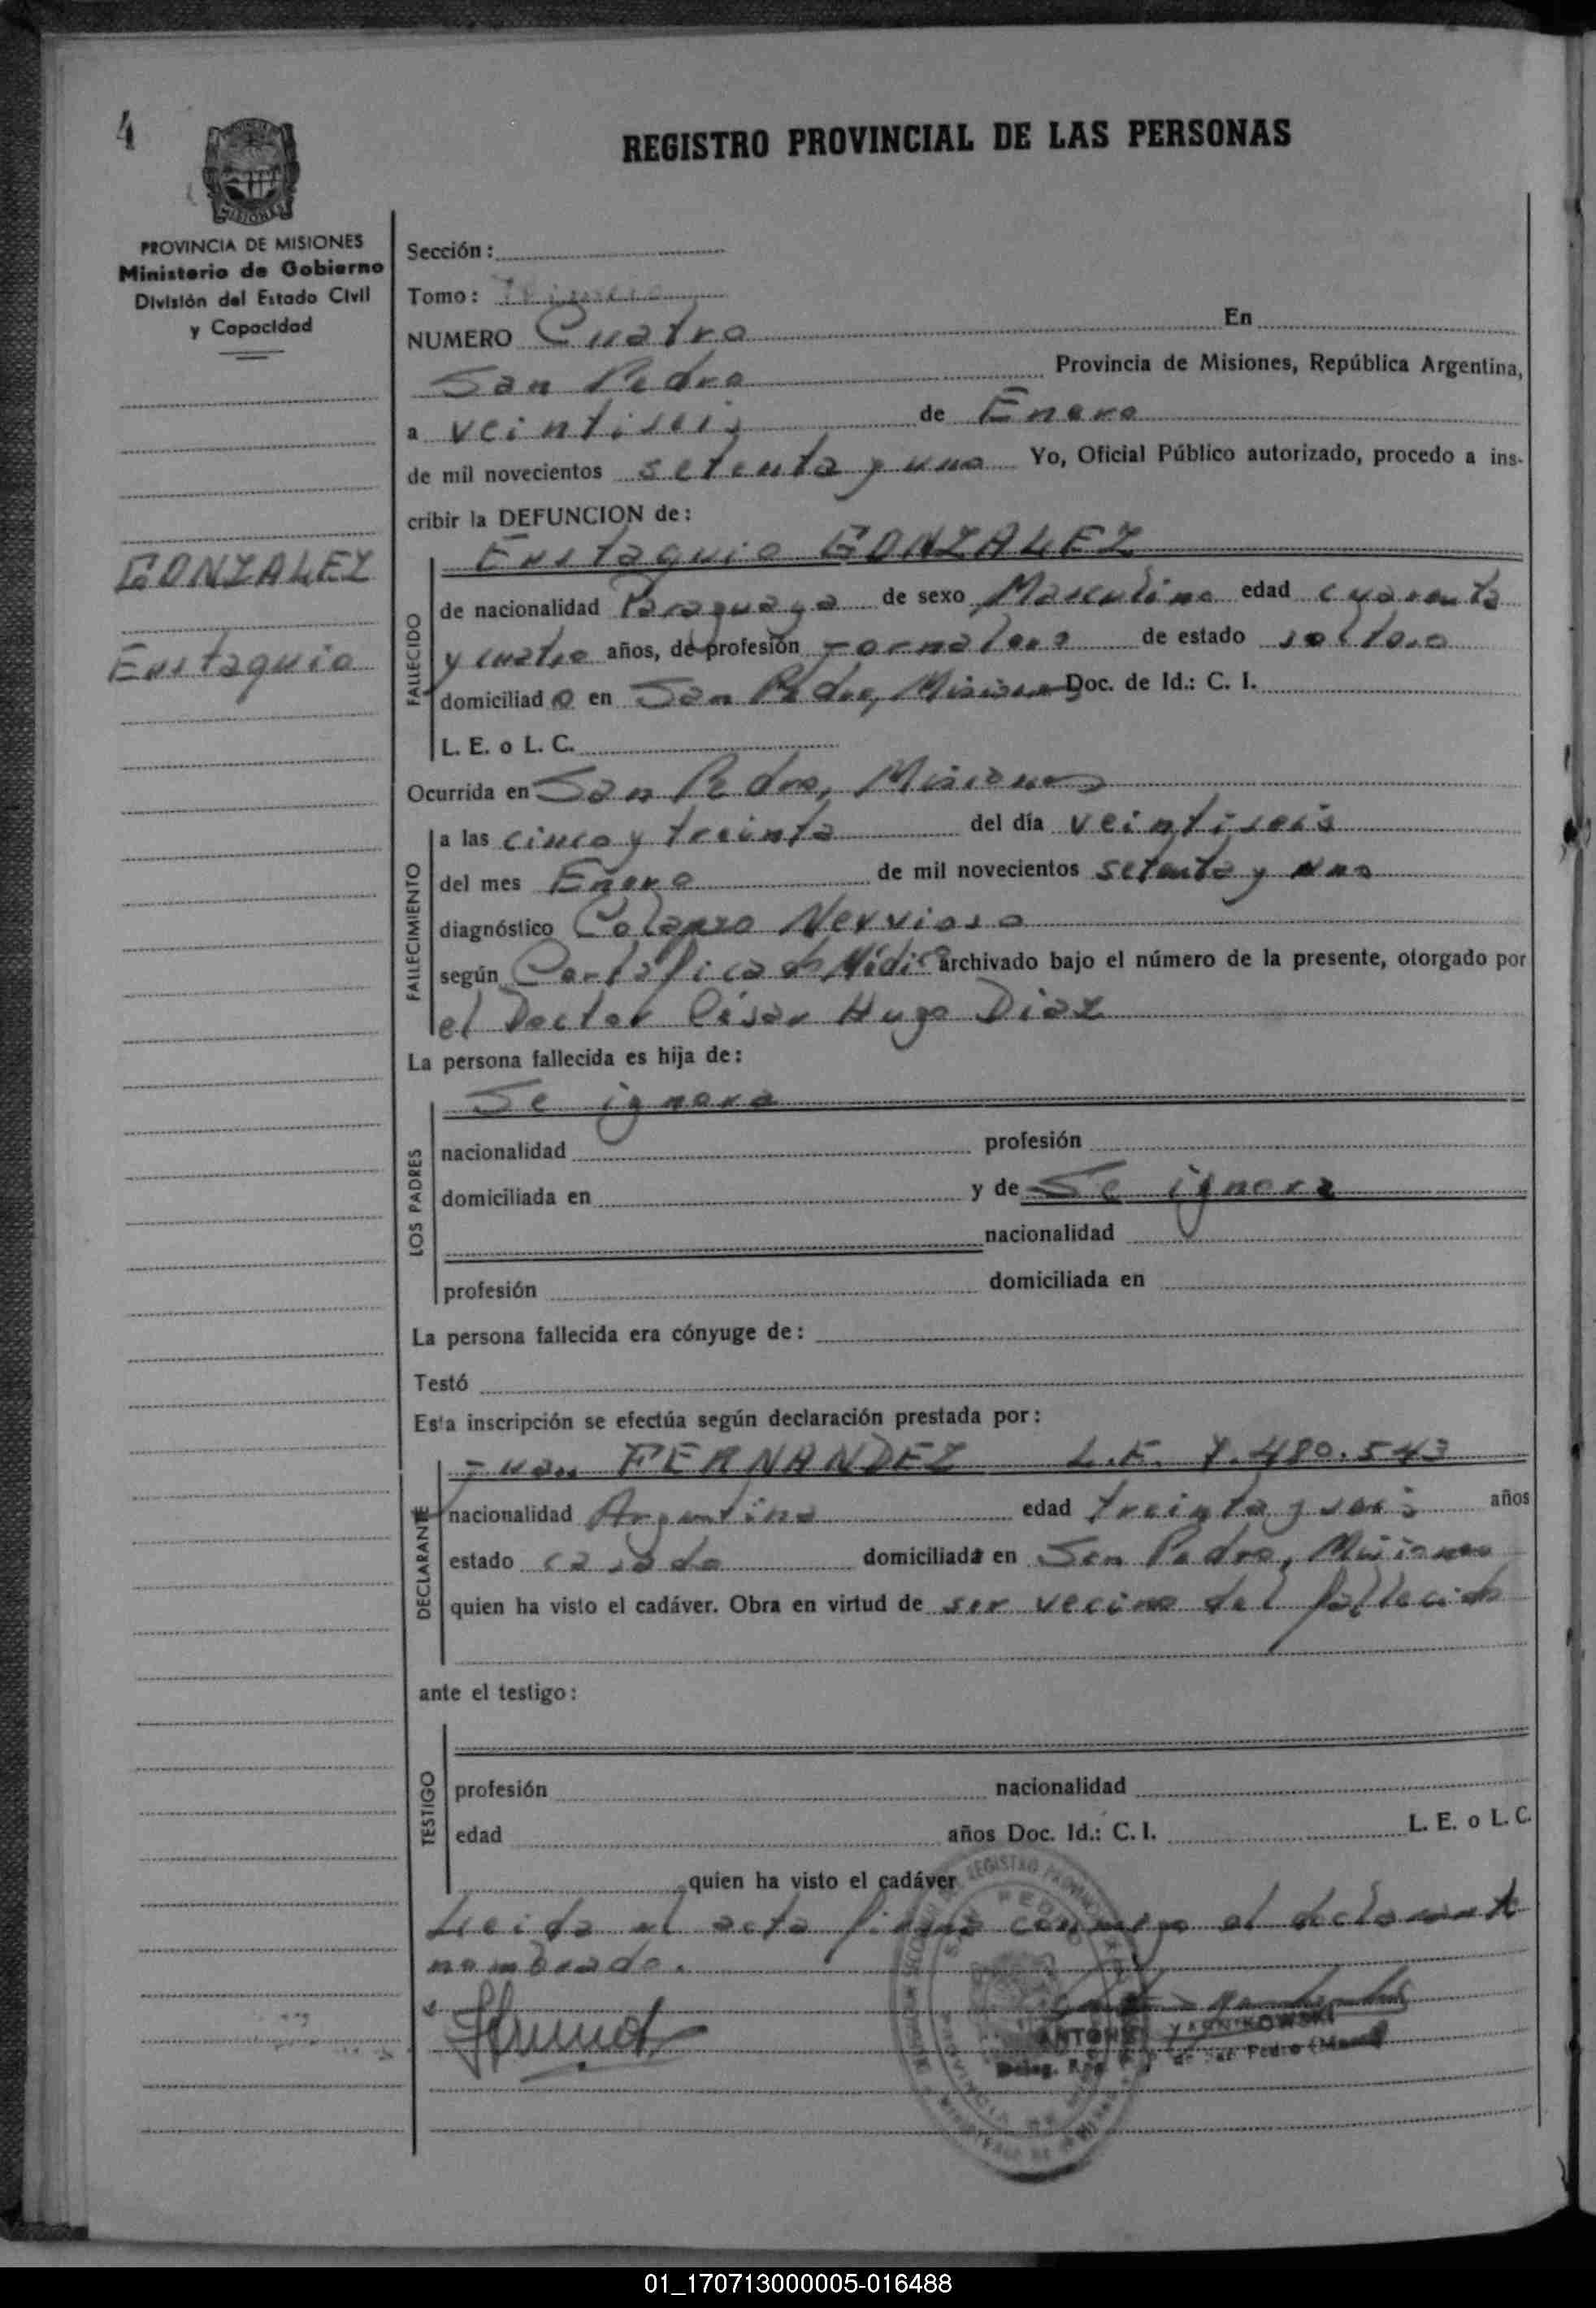 4
REGISTRO PROVINCIAL DE LAS PERSONAS
MISIONES
PROVINCIA DE MISIONES
Ministerio de Gobierno
División del Estado Civil
y Capacidad
GONZALEZ
Eustaquio
Sección:
Tomo: Primero
NUMERO Cuatro En
San Pedro Provincia de Misiones, República Argentina,
a veintiseis de Enero
de mil novecientos setenta y uno Yo, Oficial Público autorizado, procedo a ins-
cribir la DEFUNCION de:
Eustaquio GONZALEZ
FALLECIDO
de nacionalidad Paraguaya de sexo Masculino edad cuarenta
y cuatro años, de profesión Jornalero de estado soltero
domiciliado en San Pedro, Misiones Doc. de Id.: C. I.
L. E. o L. C.
Ocurrida en San Pedro, Misiones
FALLECIMIENTO
a las cinco y treinta del día veintiseis
del mes Enero de mil novecientos setenta y uno
diagnóstico Colapso Nervioso
según Certificado Médico archivado bajo el número de la presente, otorgado por
el Doctor César Hugo Diaz
La persona fallecida es hija de:
Se ignora
LOS PADRES
nacionalidad profesión
domiciliada en y de Se ignora
nacionalidad
profesión domiciliada en
La persona fallecida era cónyuge de:
Testó
Esta inscripción se efectúa según declaración prestada por:
Juan FERNANDEZ L.E. 7.480.543
DECLARANTE
nacionalidad Argentina edad treinta y seis años
estado casado domiciliada en San Pedro, Misiones
quien ha visto el cadáver. Obra en virtud de ser vecino del fallecido
ante el testigo:
TESTIGO
profesión nacionalidad
edad años Doc. Id.: C. I. L. E. o L. C.
quien ha visto el cadáver
Leida el acta firma conmigo el declarante
nombrado.
Deleg. de San Pedro
01_170713000005-016488